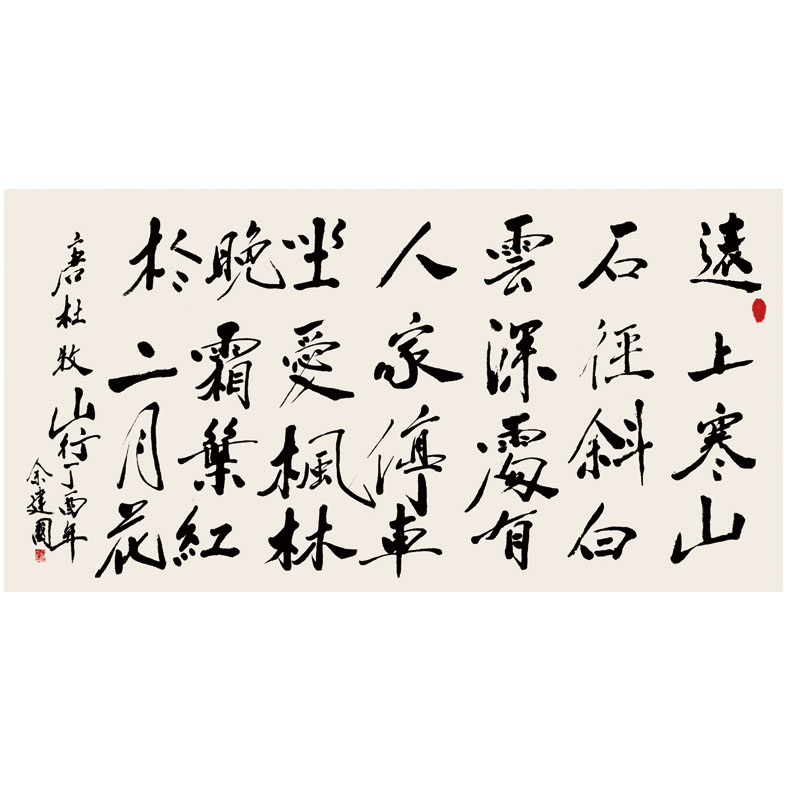 遠上寒山
石徑斜白
雲深處有
人家停車
坐愛楓林
晚霜葉紅
於二月花
唐杜牧山行丁酉年
余建國